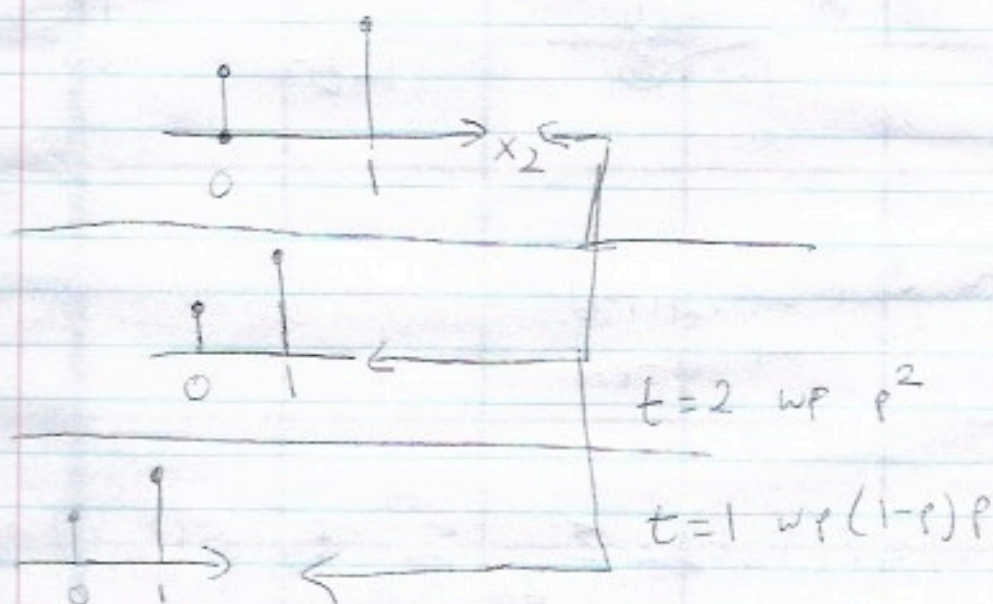 x₂
0 1
0 1
t=2 wp p²
t=1 wp (1-p)p
0 1